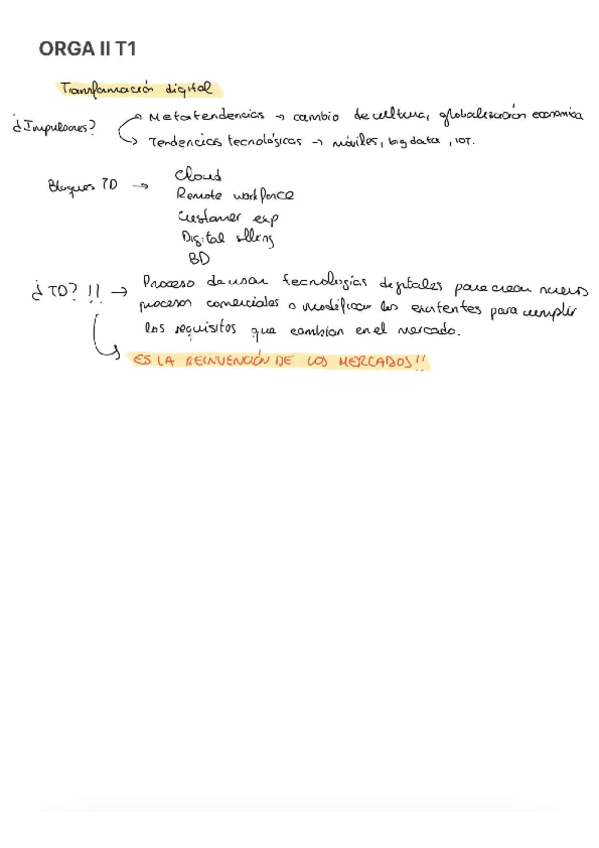 ORGA II T1
Transformación digital
¿Impulsores?
Metatendencias → cambio de cultura, globalización económica
Tendencias tecnológicas → móviles, big data, IOT.
Bloques TD →
Cloud
Remote workforce
Customer exp
Digital selling
BD
¿TD? !! → Proceso de usar tecnologías digitales para crear nuevos
procesos comerciales o modificar los existentes para cumplir
los requisitos que cambian en el mercado.
ES LA REINVENCIÓN DE LOS MERCADOS!!